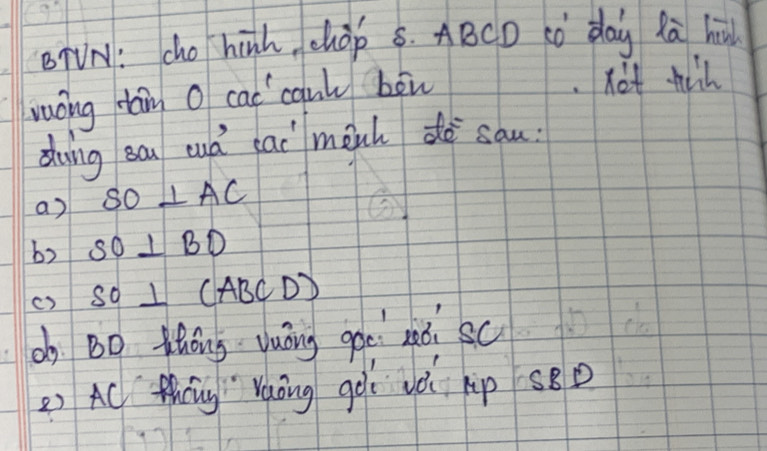 BTVN: cho hình chóp S. ABCD có đáy là hình
vuông tâm O các cạnh bên . Xét tính
đúng sai của các mệnh đề sau:
a) SO ⊥ AC
b) SO ⊥ BD
c) SO ⊥ (ABCD)
d) BD không vuông góc với SC
e) AC không vuông góc với mp SBD